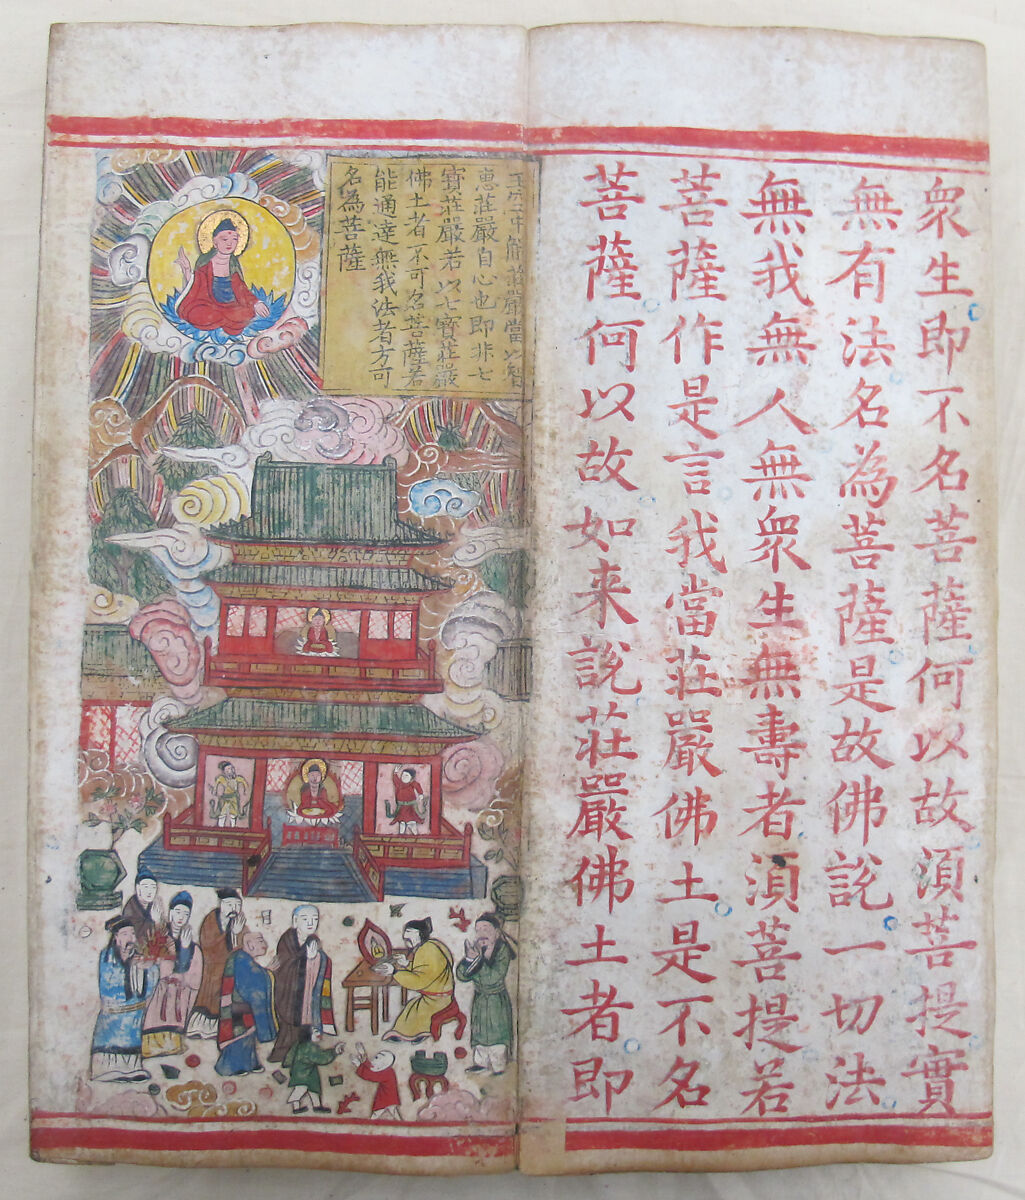 衆生即不名菩薩何以故須菩提實
無有法名為菩薩是故佛說一切法
無我無人無衆生無壽者須菩提若
菩薩作是言我當莊嚴佛土是不名
菩薩何以故如来說莊嚴佛土者即
能莊嚴當以智
惠莊嚴自心也即非七
寳莊嚴若以七寳莊嚴
佛土者不可名菩薩若
能通達無我法者方可
名為菩薩